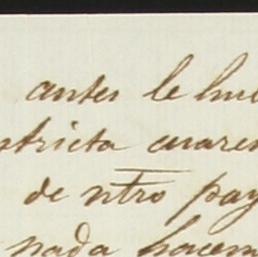 antes le hu
stricta cuare
de ntro pay
nada hacem